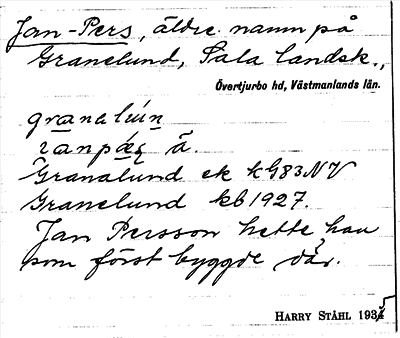 Jan-Pers, äldre namn på
Granelund, Sala landsk.,
Övertjurbo hd, Västmanlands län.
granalún
ä.
Granalund ek
Granelund kb 1927.
Jan Persson hette han
som först byggde där.
HARRY STÅHL 1934